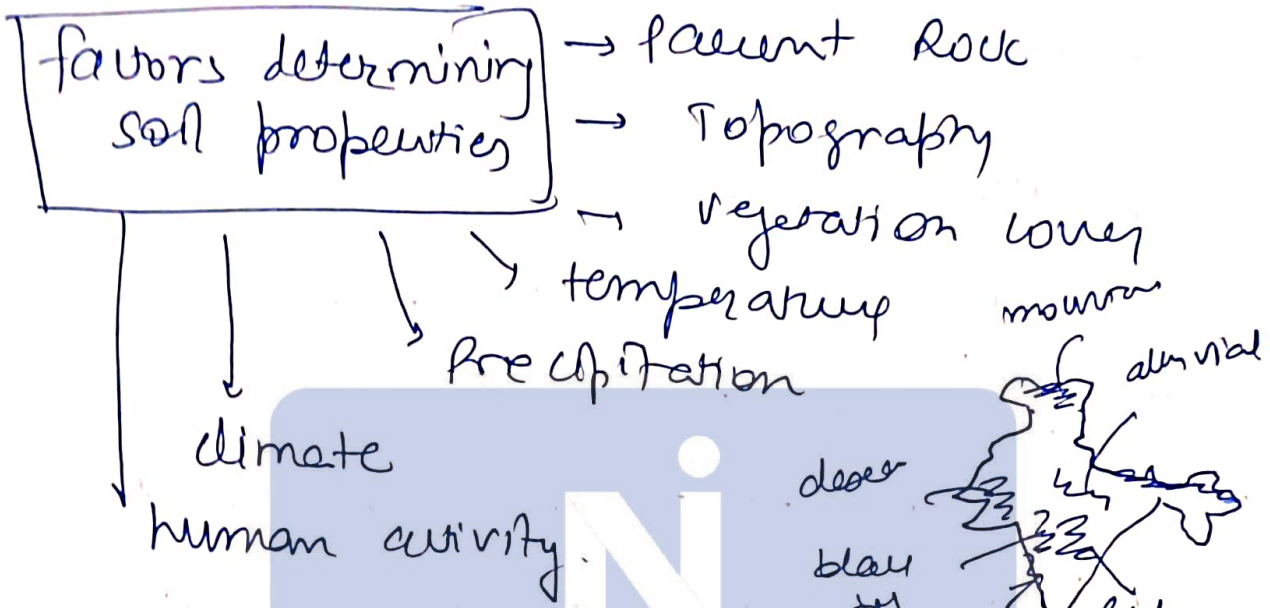 factors determining → Parent Rock
soil properties → Topography
→ vegetation cover
temperature
Precipitation
climate
human activity.
mountain
alluvial
desert
black